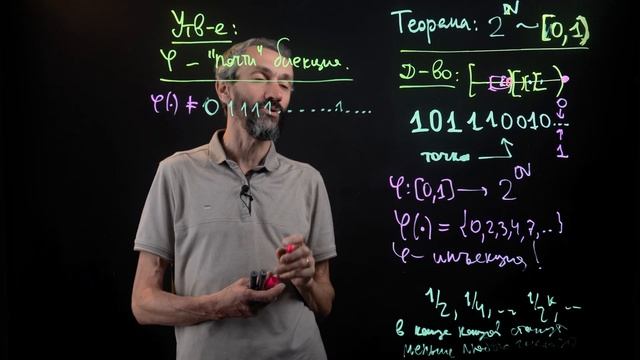 Утв-е:
φ – "почти" биекция.
φ(·) ≠ 0 1 1 1 1 . . . . . . . 1 . . . .
Теорема: 2^ℕ ~ [0,1)
Д-во:
0
101110010...
точка
1
φ: [0,1) → 2^ℕ
φ(·) = {0,2,3,4,7,...}
φ – инъекция!
1/2, 1/4, ... 1/2^k, ...
в конце концов станут
меньше